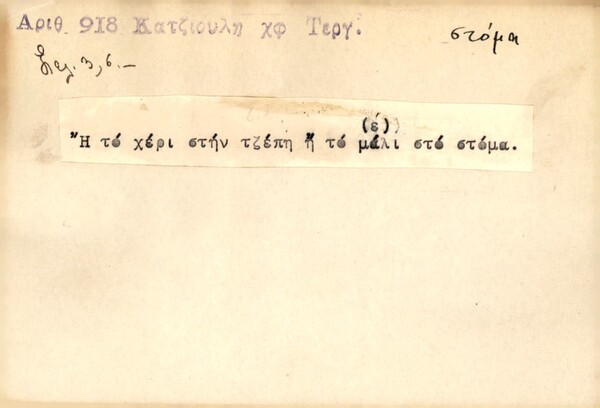 Αριθ 918 Κατζιουλη χφ Τεργ.
στόμα
Σελ. 3, 6.—
(έ)
"Η τό χέρι στήν τζέπη ἤ τό μάλι στό στόμα.